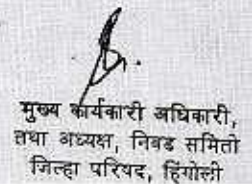 मुख्य कार्यकारी अधिकारी,
तथा अध्यक्ष, निवड समिती
जिल्हा परिषद, हिंगोली